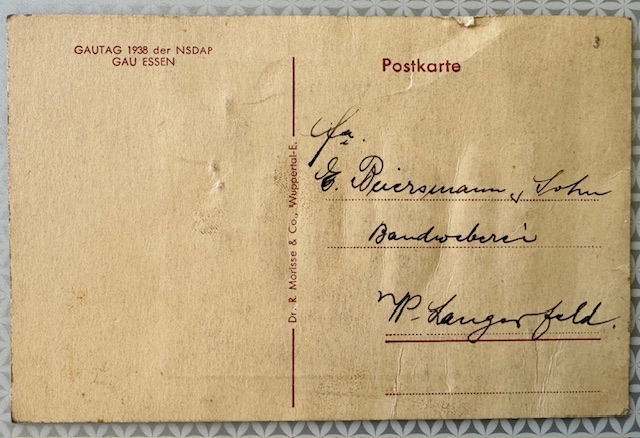 GAUTAG 1938 der NSDAP
GAU ESSEN
Postkarte
3
Dr. R. Morisse & Co., Wuppertal-E.
Fa.
E. Biersmann & Sohn
Bandweberei
W.-Langerfeld.